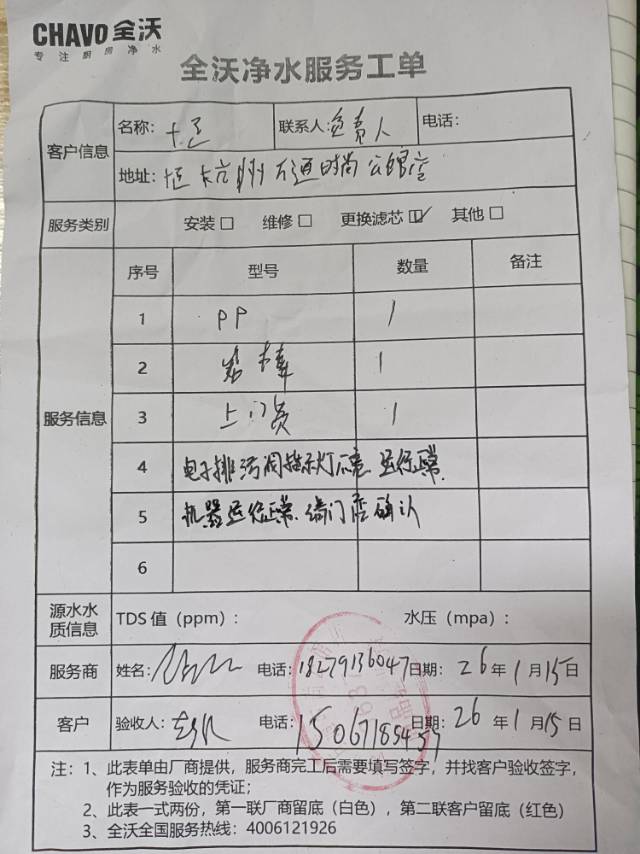 CHAVO 全沃
专注厨房净水
全沃净水服务工单
客户信息
名称：
联系人：负责人
电话：
地址：恒 杭州万通时尚公馆店
服务类别
安装□ 维修□ 更换滤芯☑ 其他□
服务信息
序号 型号 数量 备注
1 PP 1
2 炭棒 1
3 上门费 1
4 电子排污阀指示灯 运行正常
5 机器运行正常 门店确认
6
源水水质信息
TDS 值（ppm）： 水压（mpa）：
服务商 姓名： 电话：18279136047 日期：26 年 1 月 15 日
客户 验收人： 电话： 日期：26 年 1 月 15 日
注：1、此表单由厂商提供，服务商完工后需要填写签字，并找客户验收签字，
作为服务验收的凭证；
2、此表一式两份，第一联厂商留底（白色），第二联客户留底（红色）
3、全沃全国服务热线：4006121926